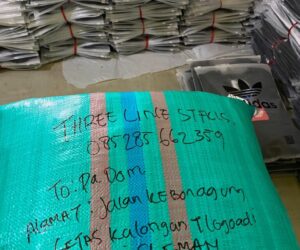 THREE LINE STFCLS
085285 662359
To: Pa Dom
ALAMAT: Jalan KEBONAGUNG
GETAS Kalongan Tlogoadi
SLEMAN
adidas